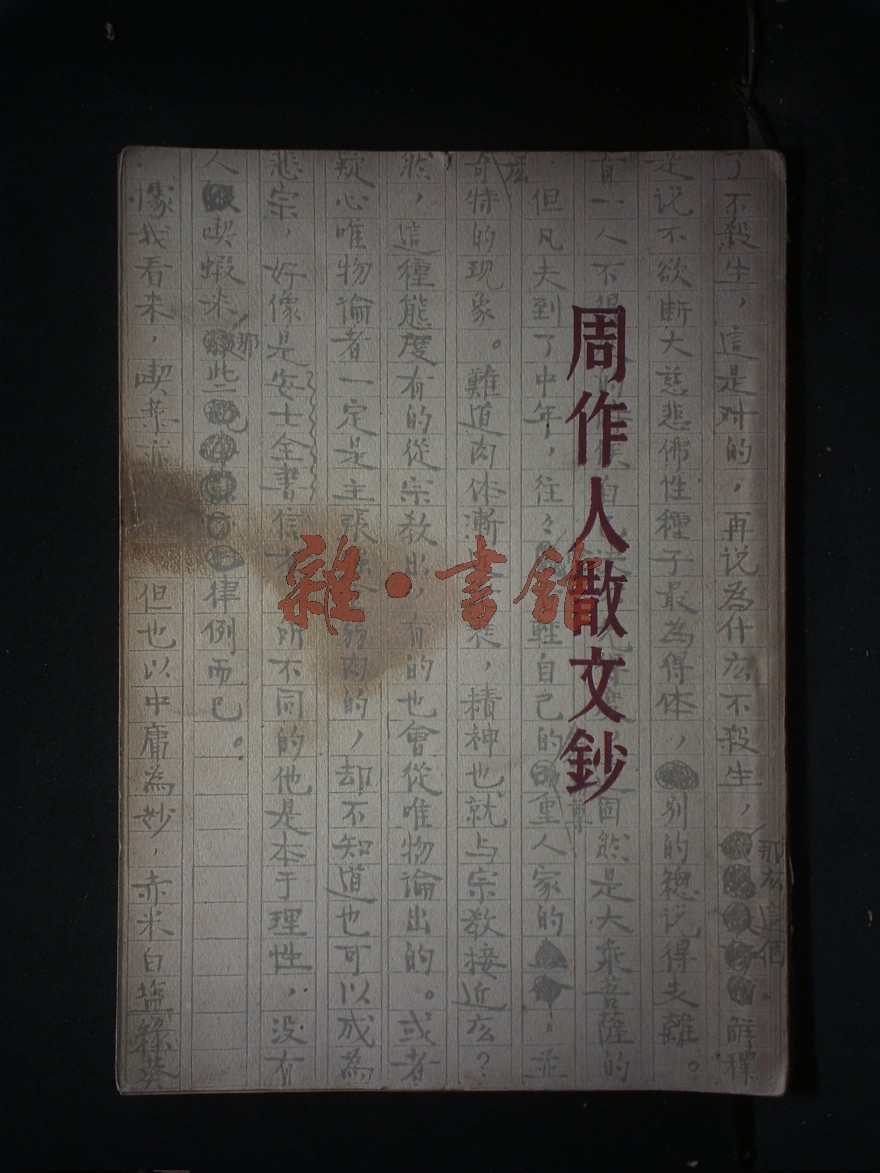 周作人散文鈔
雜·書館
了不殺生，這是对的，再说為什広不殺生，解釋
那広這個
是说不欲断大慈悲佛性種子最為得体，別的總说得支離。
有一人不得 自 固然是大乘菩薩的
但凡夫到了中年，往々 輕自己的 重人家的 ，並
尊
奇特的现象。難道肉体漸 衰，精神也就与宗教接近広？
広
然，這種態度有的從宗教出，有的也會從唯物論出的。或者
疑心唯物論者一定是主張 弱肉的，却不知道也可以成為
悲宗，好像是安士全書信 所不同的他是本于理性，没有
人 喫蝦米 此二 律例而已。
那
像我看来，喫素 但也以中庸為妙，赤米白盐緑葵